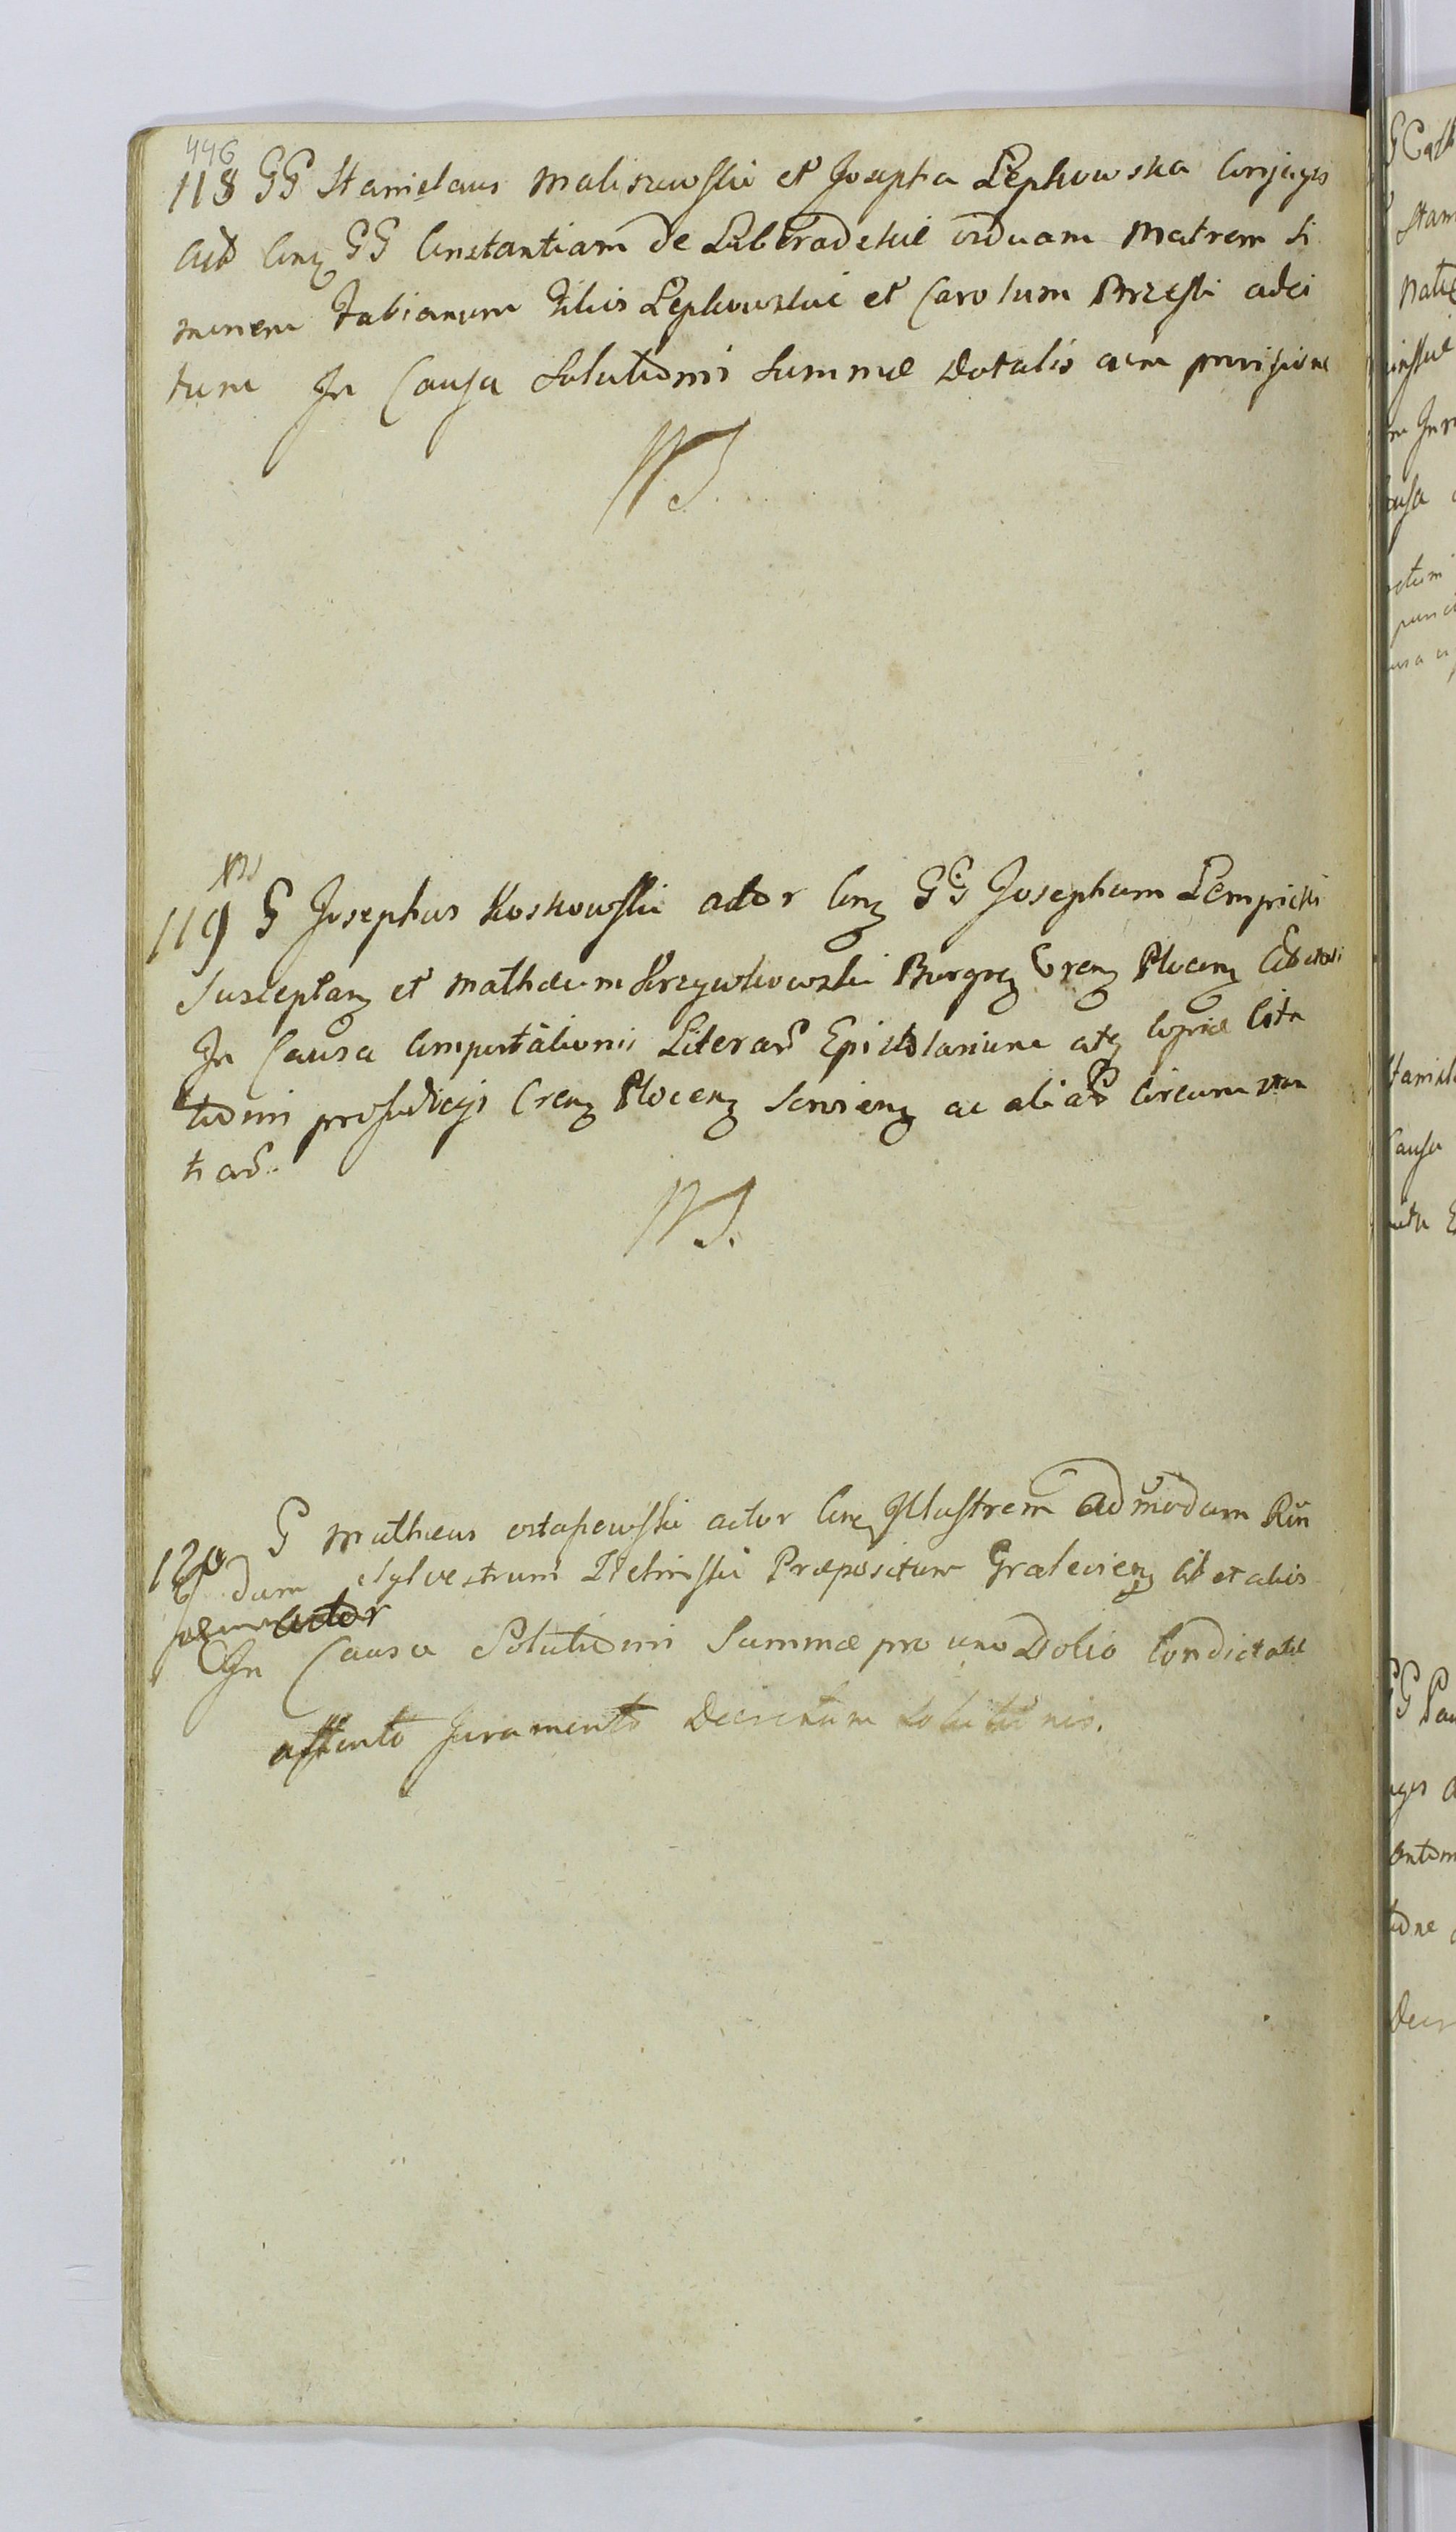 446
118 GG Stanislaus Maliszewski et Josepha Lepkowska Conjuges
Act Cinz GG Constantiam de Liberadzkie viduam Matrem Si
monem Fabianum Filios Lepkowskie et Carolum Brzeski adci
tum In Causa Solutionis Summæ Dotalis cum provisione
NS.
NS
119 G Josephus Koskowski actor Cinz GG Josephum Lempicki
Susceptanz et Mathæum Krzywkowski Burgrz Crenz Plocenz Citatos
In Causa Comportationis Literar Epistolarium atqz Copiæ Cita
tionis pro Judicys Crenz Plocenz Serviens ac aliar Circumstan
tiar.
NS.
120 G Matheus Ostaszewski actor Cinz Illustrem admodum Rɱ
dum Sylvestrum Zielinski Præpositum Gralevienz Cit et alios
actor
In Causa Solutionis Summæ pro uno Dolio Condictatæ
Juramento Decretum Solutionis.
G Cath
Stan
Causa
Decr